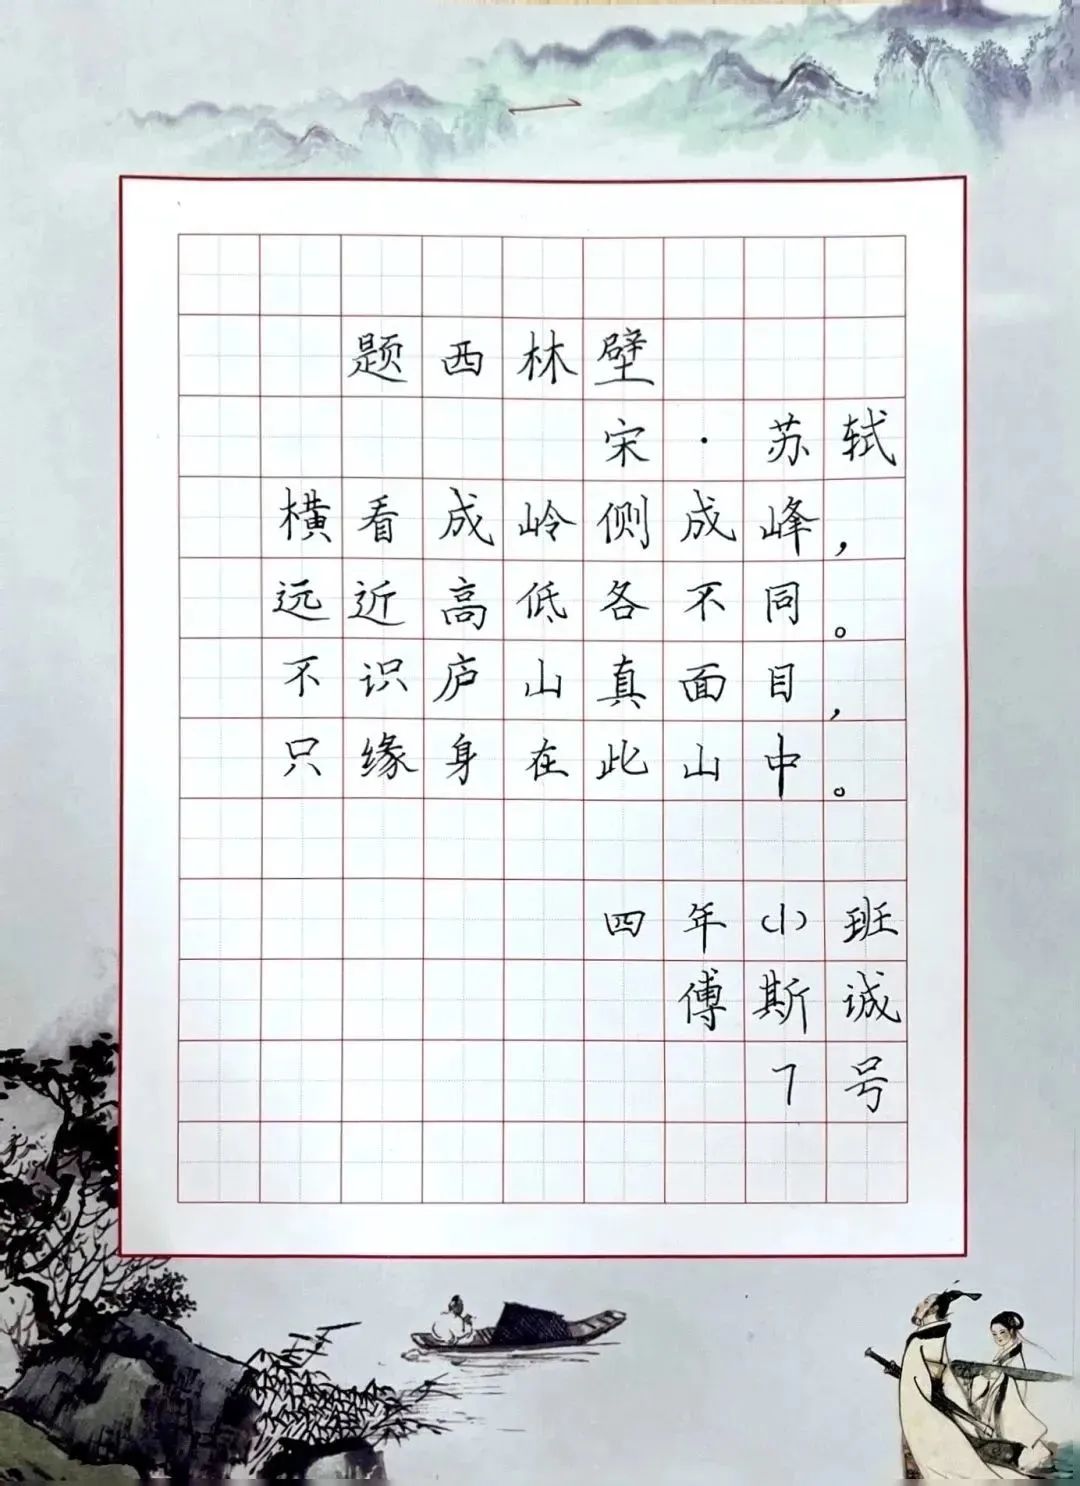 题西林壁
宋·苏轼
横看成岭侧成峰，
远近高低各不同。
不识庐山真面目，
只缘身在此山中。
四年(1)班
傅斯诚
7号